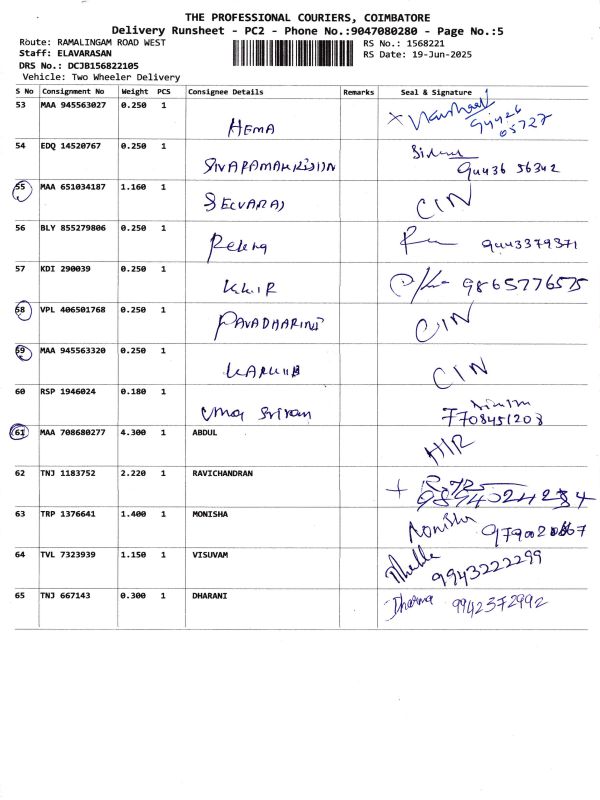 THE PROFESSIONAL COURIERS, COIMBATORE
Delivery Runsheet - PC2 - Phone No.:9047080280 - Page No.:5
Route: RAMALINGAM ROAD WEST RS No.: 1568221
Staff: ELAVARASAN RS Date: 19-Jun-2025
DRS No.: DCJB156822105
Vehicle: Two Wheeler Delivery
S No Consignment No Weight PCS Consignee Details Remarks Seal & Signature
53 MAA 945563027 0.250 1 HEMA
54 EDQ 14520767 0.250 1 94436 56342
55 MAA 651034187 1.160 1 SELVARAJ CIN
56 BLY 855279806 0.250 1 9443379371
57 KDI 290039 0.250 1 9865776575
58 VPL 406501768 0.250 1 PAVADHARINI CIN
59 MAA 945563320 0.250 1 CIN
60 RSP 1946024 0.180 1 Uma Sriram 7708451208
61 MAA 708680277 4.300 1 ABDUL
62 TNJ 1183752 2.220 1 RAVICHANDRAN
63 TRP 1376641 1.400 1 MONISHA Monisha
64 TVL 7323939 1.150 1 VISUVAM 9943222299
65 TNJ 667143 0.300 1 DHARANI 9942372992